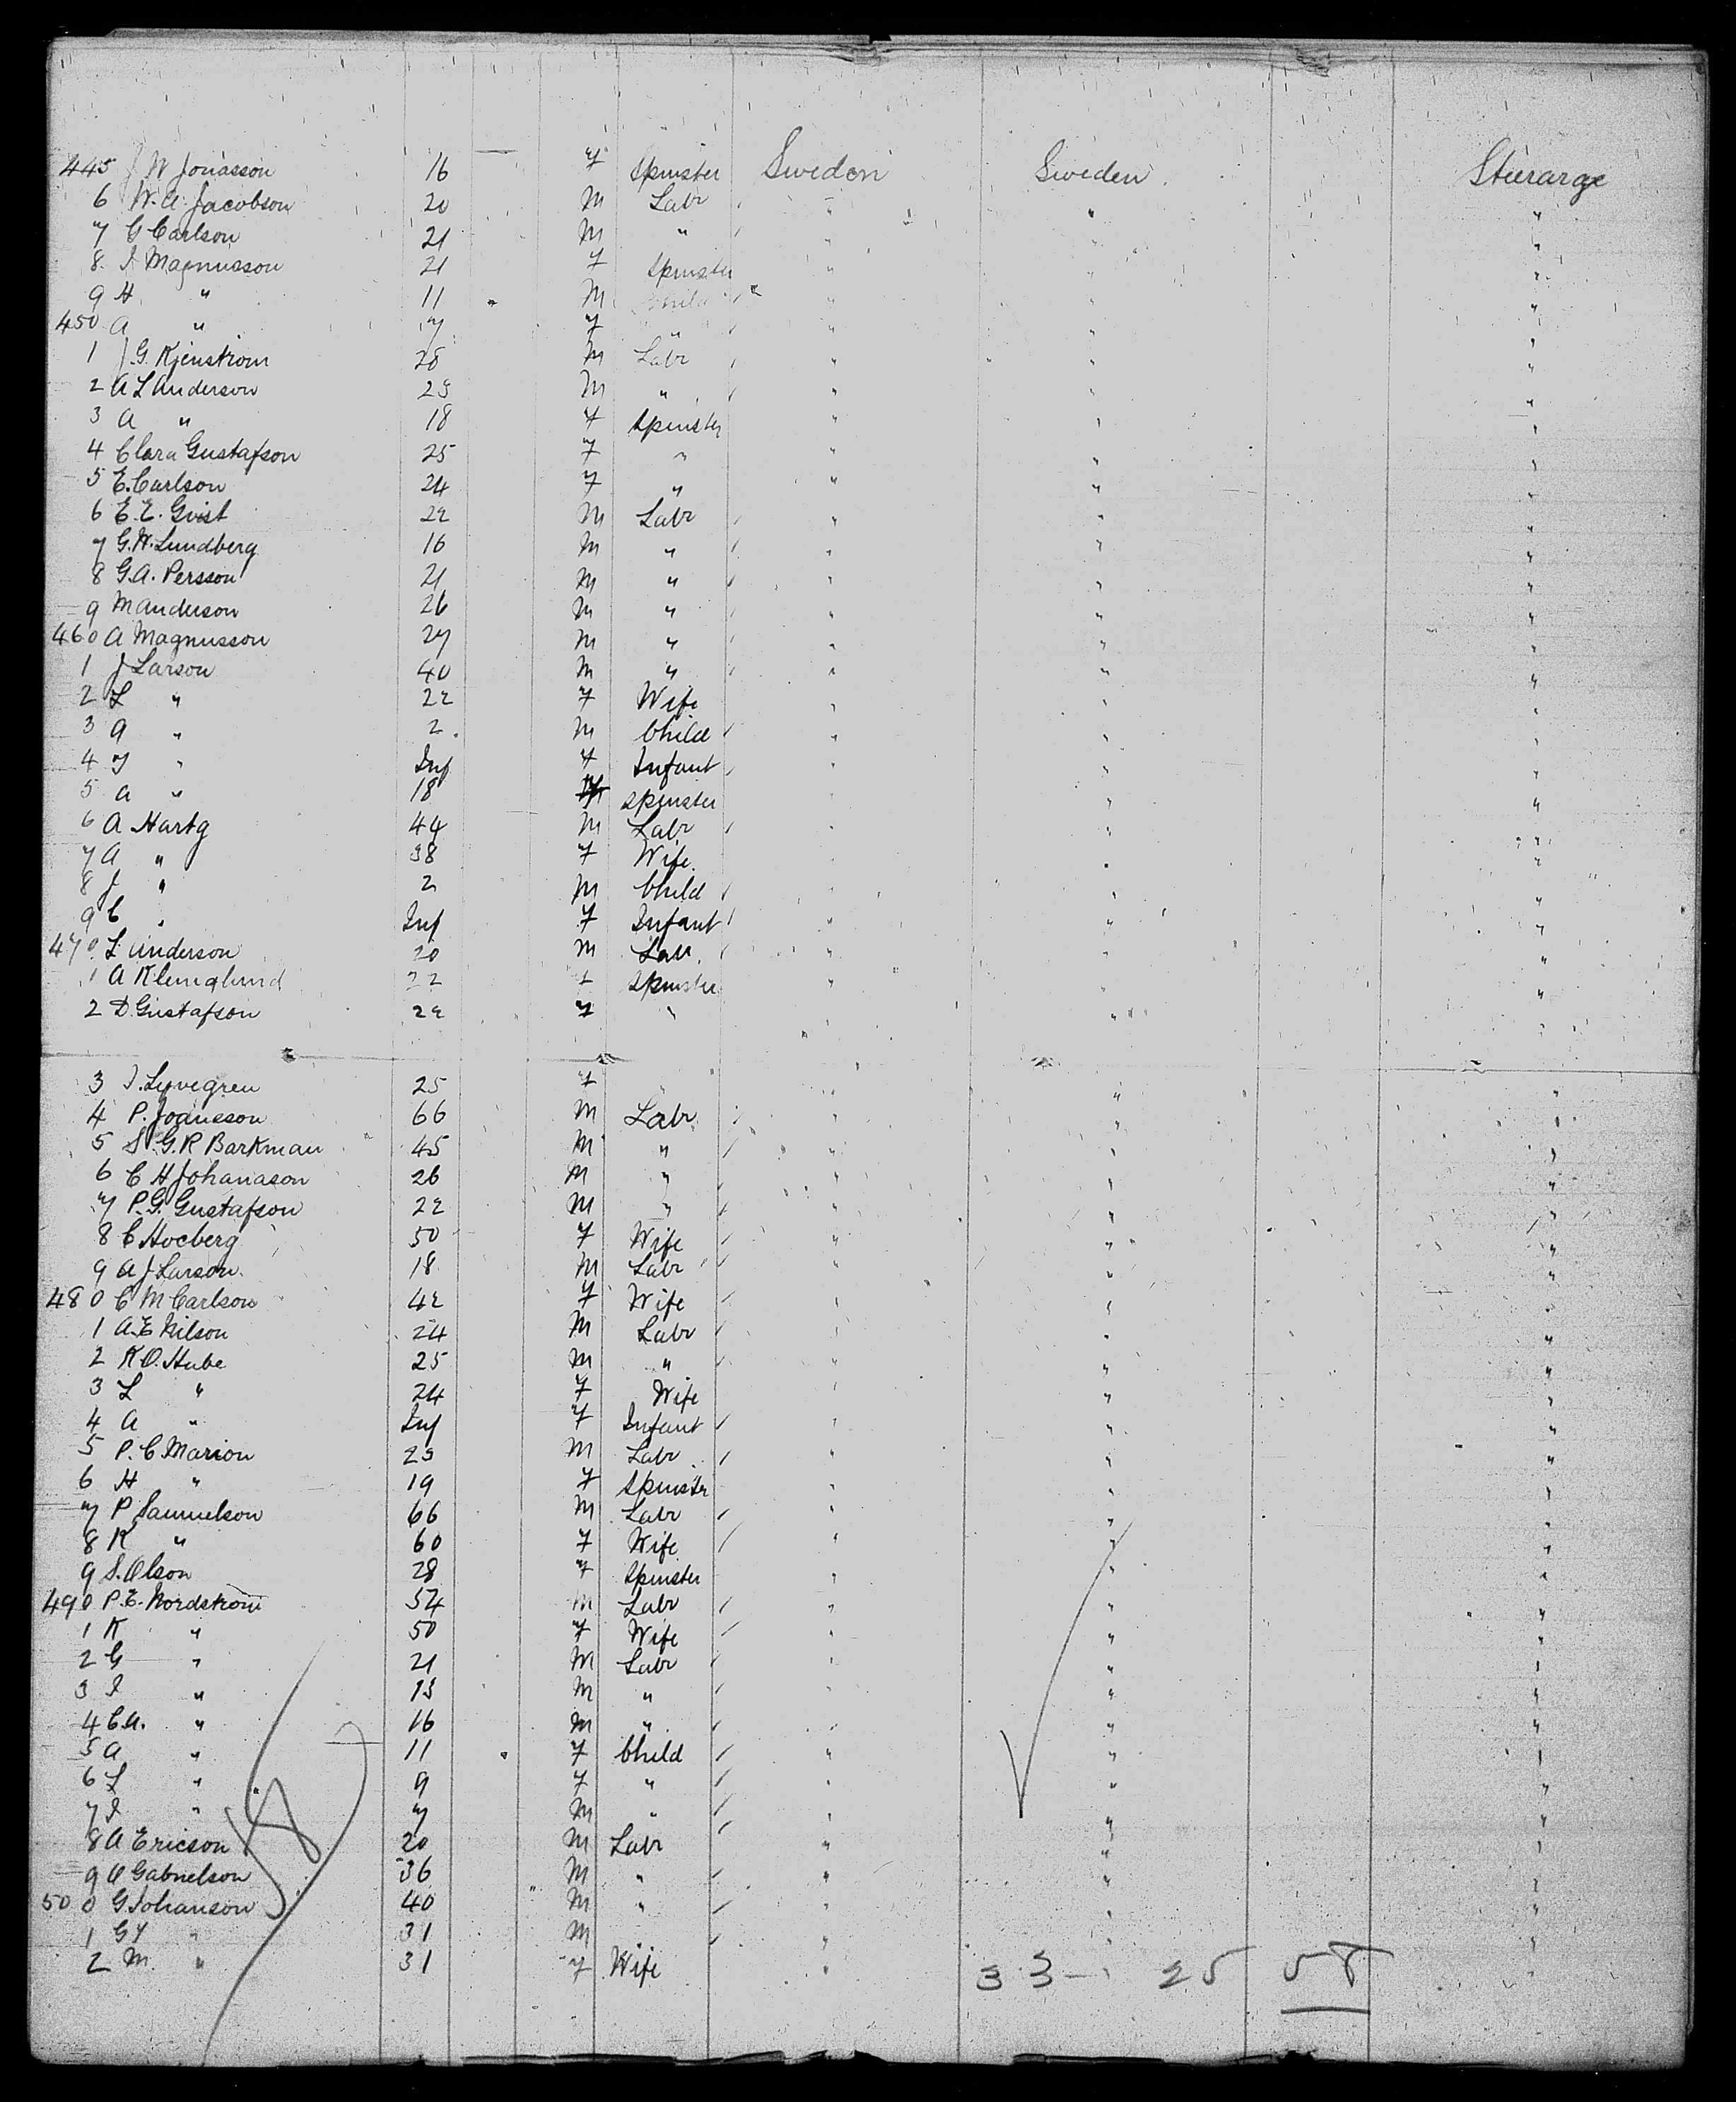 445 J W Jonasson 16 f Spinster Sweden Sweden Steerarge
6 W. A. Jacobson 20 M Labr " " "
7 G Carlson 21 M " " " "
8 I Magnusson 21 f Spinster " " "
9 H " 11 M Child " " "
450 A " 7 f " " " "
1 J. G. Kjenstrom 28 M Labr " " "
2 A L Anderson 23 M " " " "
3 A " 18 f Spinster " " "
4 Clara Gustafson 25 f " " " "
5 E. Carlson 24 f " " " "
6 E. E. Gvist 22 M Labr " " "
7 G. H. Lundberg 16 M " " " "
8 G. A. Persson 21 M " " " "
9 M Anderson 26 M " " " "
460 A Magnusson 27 M " " " "
1 J Larson 40 M " " " "
2 L " 22 f Wife " " "
3 A " 2 M Child " " "
4 J " Inf f Infant " " "
5 A " 18 f Spinster " " "
6 A Hartg 44 M Labr " " "
7 A " 38 f Wife " " "
8 J " 2 M Child " " "
9 C " Inf f Infant " " "
470 L Anderson 20 M Labr " " "
1 A Klinglund 22 f Spinster " " "
2 D. Gustafson 22 f " " " "
3 I. Lyvegren 25 f " " " "
4 P. Joansson 66 M Labr " " "
5 S. G. R Barkman 45 M " " " "
6 C H Johanason 26 M " " " "
7 P. G. Gustafson 22 M " " " "
8 C Hocberg 50 f Wife " " "
9 A J Larson 18 M Labr " " "
480 C M Carlson 42 f Wife " " "
1 A. E Nilson 24 M Labr " " "
2 K O. Hube 25 M " " " "
3 L " 24 f Wife " " "
4 A " Inf f Infant " " "
5 P. C Marion 23 M Labr " " "
6 H " 19 f Spinster " " "
7 P Samuelson 66 M Labr " " "
8 K " 60 f Wife " " "
9 S. Olson 28 f Spinster " " "
490 P. E. Nordstrom 54 M Labr " " "
1 K " 50 f Wife " " "
2 G " 21 M Labr " " "
3 I " 13 M " " " "
4 C. A. " 16 M " " " "
5 A " 11 f Child " " "
6 L " 9 f " " " "
7 I " 7 M " " " "
8 A Ericson 20 M Labr " " "
9 A Gabrielson 36 M " " " "
500 G Johanson 40 M " " " "
1 G J " 31 M " " " "
2 M " 31 f Wife " " "
33 - 25 58